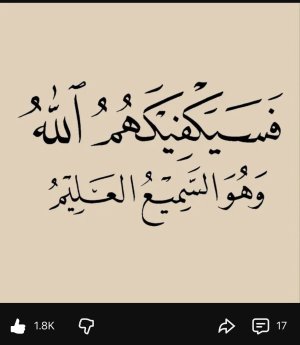 فَسَيَكْفِيكَهُمُ ٱللَّهُ
وَهُوَ السَّمِيعُ العَلِيمُ
1.8K 17